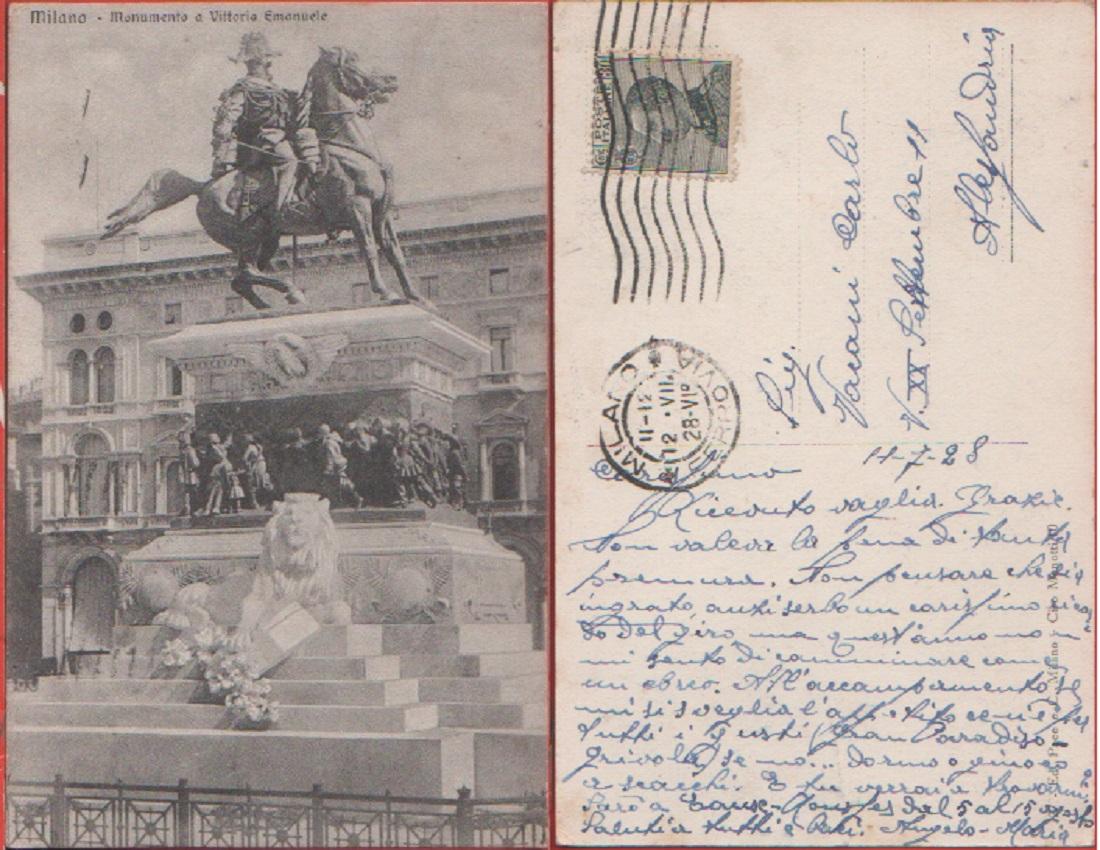 Milano - Monumento a Vittorio Emanuele
POSTE
ITALIANE
MILANO
FERROVIA
11-12
12 · VII
28·VIº
Sig.
Vaiani Carlo
V. XX Settembre 11
Alessandria
11-7-28
Carissimo
Ricevuto vaglia. Grazie.
Non valeva la pena di tanta
premura. Non pensare che sia
ingrato, anzi serbo un carissimo
del giro, ma quest'anno non
mi sento di camminare come
un ebreo. All'accampamento se
mi si sveglia l'appetito
tutti i gusti (Gran Paradiso,
Grivola) se no... dormo o gioco
a scacchi. E tu verrai a trovarmi
Sarò a dal 5 al 15 agosto
Saluti a tutti e Angelo-Maria